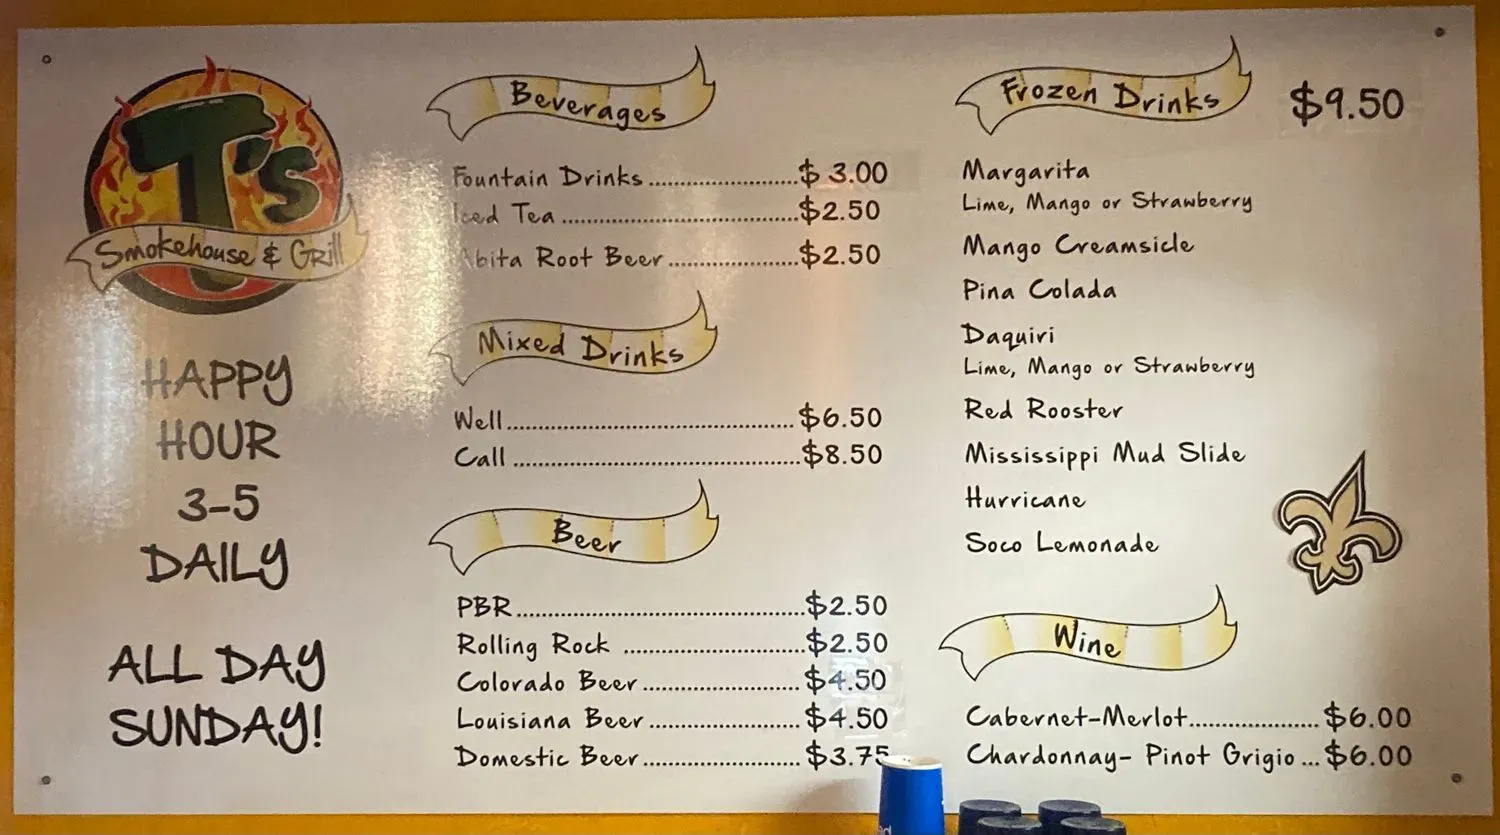 T's
Smokehouse & Grill
HAPPY
HOUR
3-5
DAILY
ALL DAY
SUNDAY!
Beverages
Fountain Drinks.......................$ 3.00
Iced Tea.......................$2.50
Abita Root Beer.......................$2.50
Mixed Drinks
Well.......................$6.50
Call.......................$8.50
Beer
PBR.......................$2.50
Rolling Rock .......................$2.50
Colorado Beer.......................$4.50
Louisiana Beer.......................$4.50
Domestic Beer.......................$3.75
Frozen Drinks $9.50
Margarita
Lime, Mango or Strawberry
Mango Creamsicle
Pina Colada
Daquiri
Lime, Mango or Strawberry
Red Rooster
Mississippi Mud Slide
Hurricane
Soco Lemonade
Wine
Cabernet-Merlot.......................$6.00
Chardonnay- Pinot Grigio ...$6.00